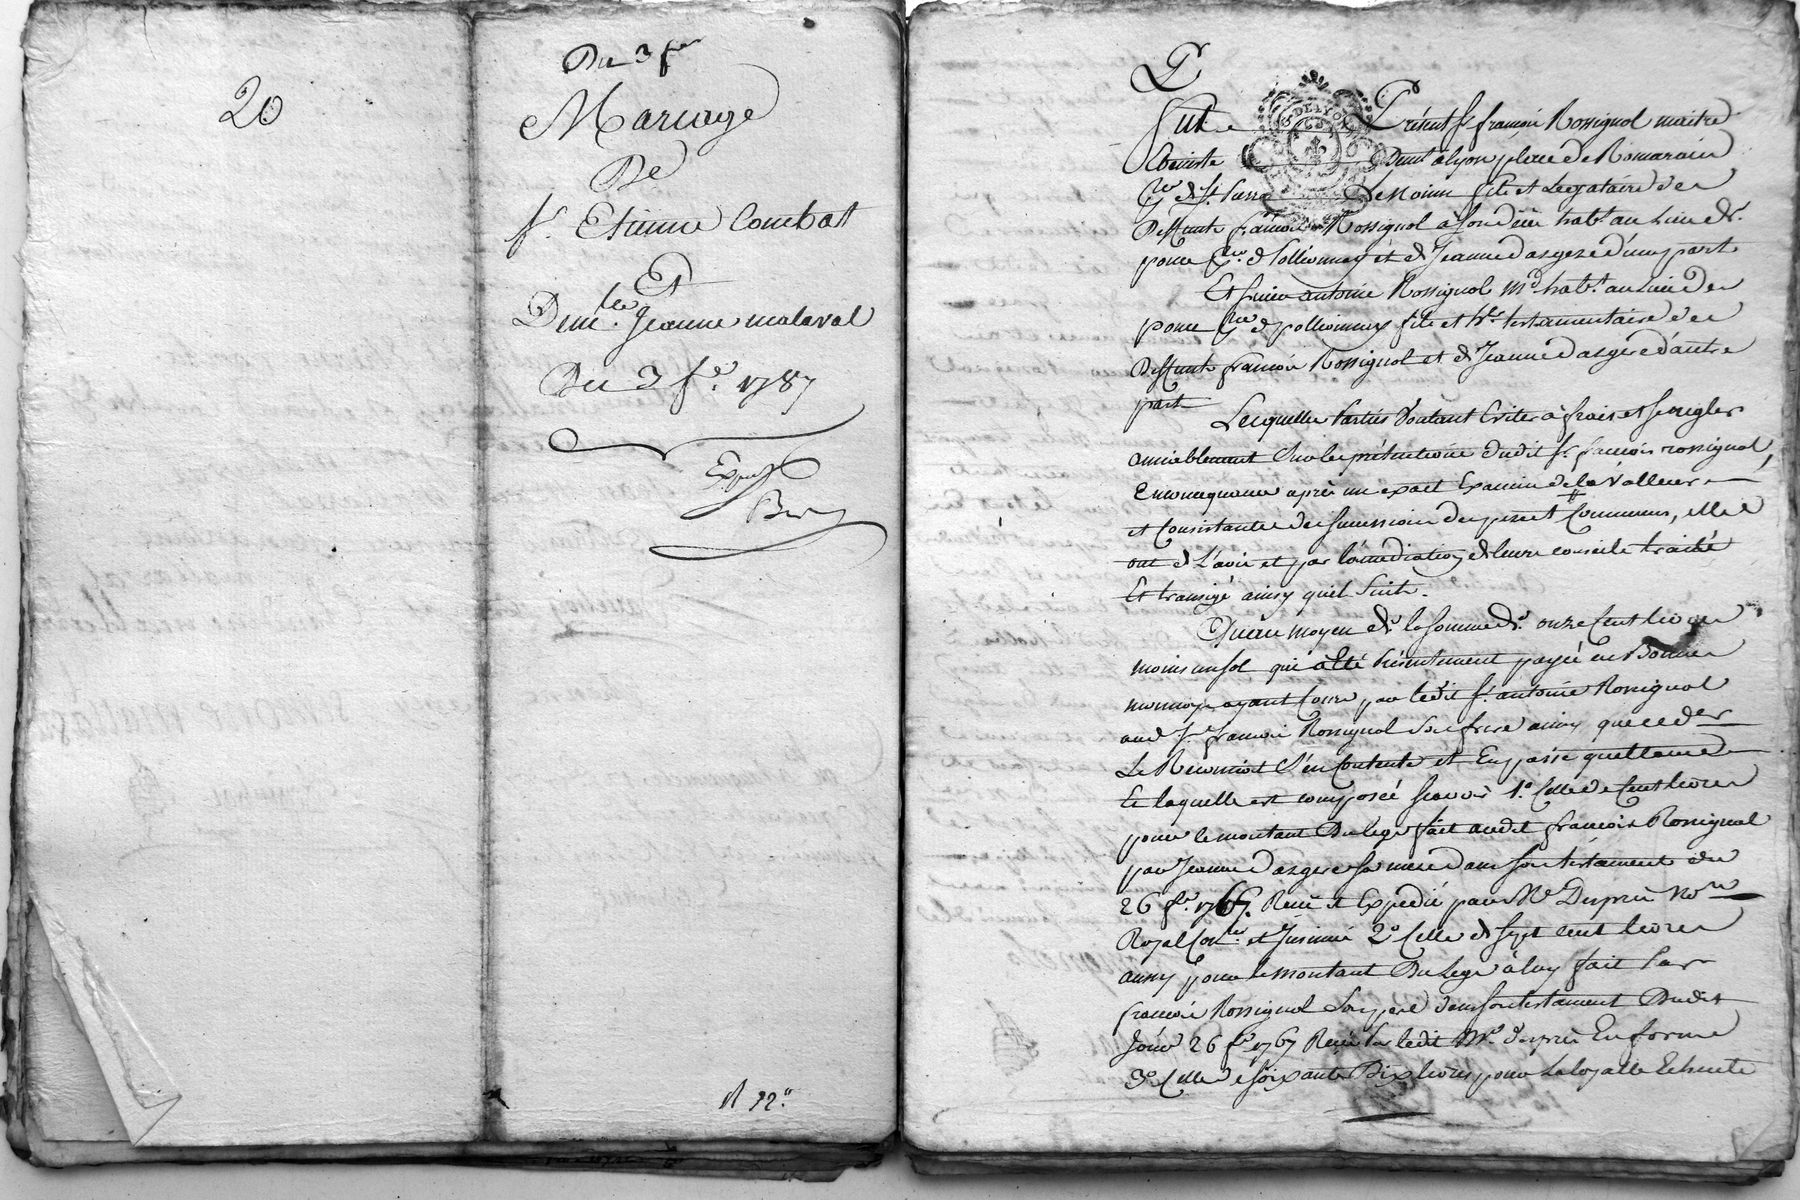 20
Du 3 fer
Mariage
De
Sr. Etienne Combat
Et
Demlle. Jeanne malaval
Du 3 fer. 1787
Expé
R 12"
Fut Présent Sr. francois Rossignol maitre
Demt. a lyon place de Romarain
fils et Legataire de
Deffunt francois Rossignol a son décè habt. au Lieu de
et de Jeanne dargere d'une part
Et sieur antoine Rossignol md. habt. au Lieu de
pollionnay fils et her. testamentaire de
Deffunt francois Rossignol et de Jeanne dargere d'autre
part
Lesquelles Parties Voulant Eviter a frais et se regler
amiablement sur les prétentions dudit Sr. francois rossignol,
En consequence après un exact Examin de la Valleur
et Consistante des successions des pere et Commune, elle
ont de L'avis et par la médiation de leurs conseils traité
Et transigé ainsy quil Suit.
Qu'au moyen de la somme de onze Cent livres
moins un sol qui a été Présentement payée en Bonne
monnoye ayant Cours par ledit Sr. antoine Rossignol
aud. Sr. francois Rossignol son frere ainsy que ceder
Le Reconnoit S'en Contente et En passe quittance
Et laquelle est composée sçavoir 1° Celle de Cent livres
pour le montant Du legs fait audit francois Rossignol
par Jeanne dargere sa mere dans son testament du
26 fer. 1767. Reçu et Expedié par Me Duprié Nore
Royal et Insinué 2° Celle de sept cent livres
aussy pour le montant Du Legs a luy fait Par
francois Rossignol Son pere dans son testament Dudit
Jour 26 fer 1767 Reçu Par ledit Me. Duprié En forme
3° Celle de soixante Dix livres pour La Echute